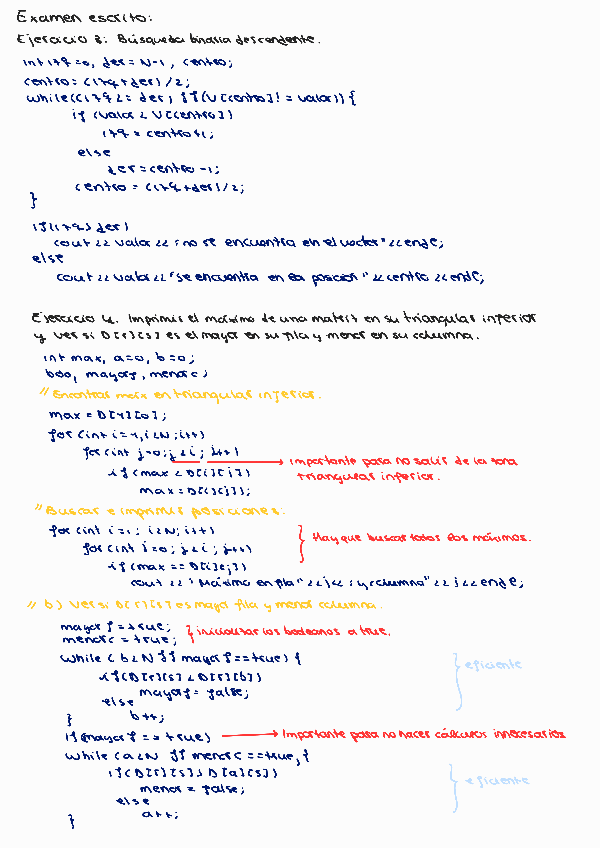 Examen escrito:
Ejercicio 3: Búsqueda binaria descendente.
int izq=0, der = N-1, centro;
centro = (izq+der)/2;
while((izq <= der) && (V[centro] != valor)) {
if (valor < V[centro])
izq = centro+1;
else
der = centro-1;
centro = (izq+der)/2;
}
if(izq > der)
cout << valor << "no se encuentra en el vector" << endl;
else
cout << valor << "se encuentra en la posición" << centro << endl;
Ejercicio 4. Imprimir el máximo de una matriz en su triangular inferior
y ver si D[r][s] es el mayor en su fila y menor en su columna.
int max, a=0, b=0;
bool, mayorf, menorc;
// Encontrar máx en triangular inferior.
max = D[1][0];
for (int i=1; i<N; i++)
for (int j=0; j<i; j++)
importante para no salir de la zona
triangular inferior.
if (max < D[i][j])
max = D[i][j];
// Buscar e imprimir posiciones:
for (int i=1; i<N; i++)
for (int j=0; j<i; j++)
Hay que buscar todos los máximos.
if (max == D[i][j])
cout << "Máximo en fila" << i << "y columna" << j << endl;
// b) Ver si D[r][s] es mayor fila y menor columna.
mayorf = true;
menorc = true;
inicializar los booleanos a true.
while (b<N && mayorf == true) {
if (D[r][s] < D[r][b])
mayorf = false;
else
b++;
}
eficiente
if(mayorf == true)
Importante para no hacer cálculos innecesarios
while (a<N && menorc == true) {
if (D[r][s] > D[a][s])
menorc = false;
else
a++;
}
eficiente